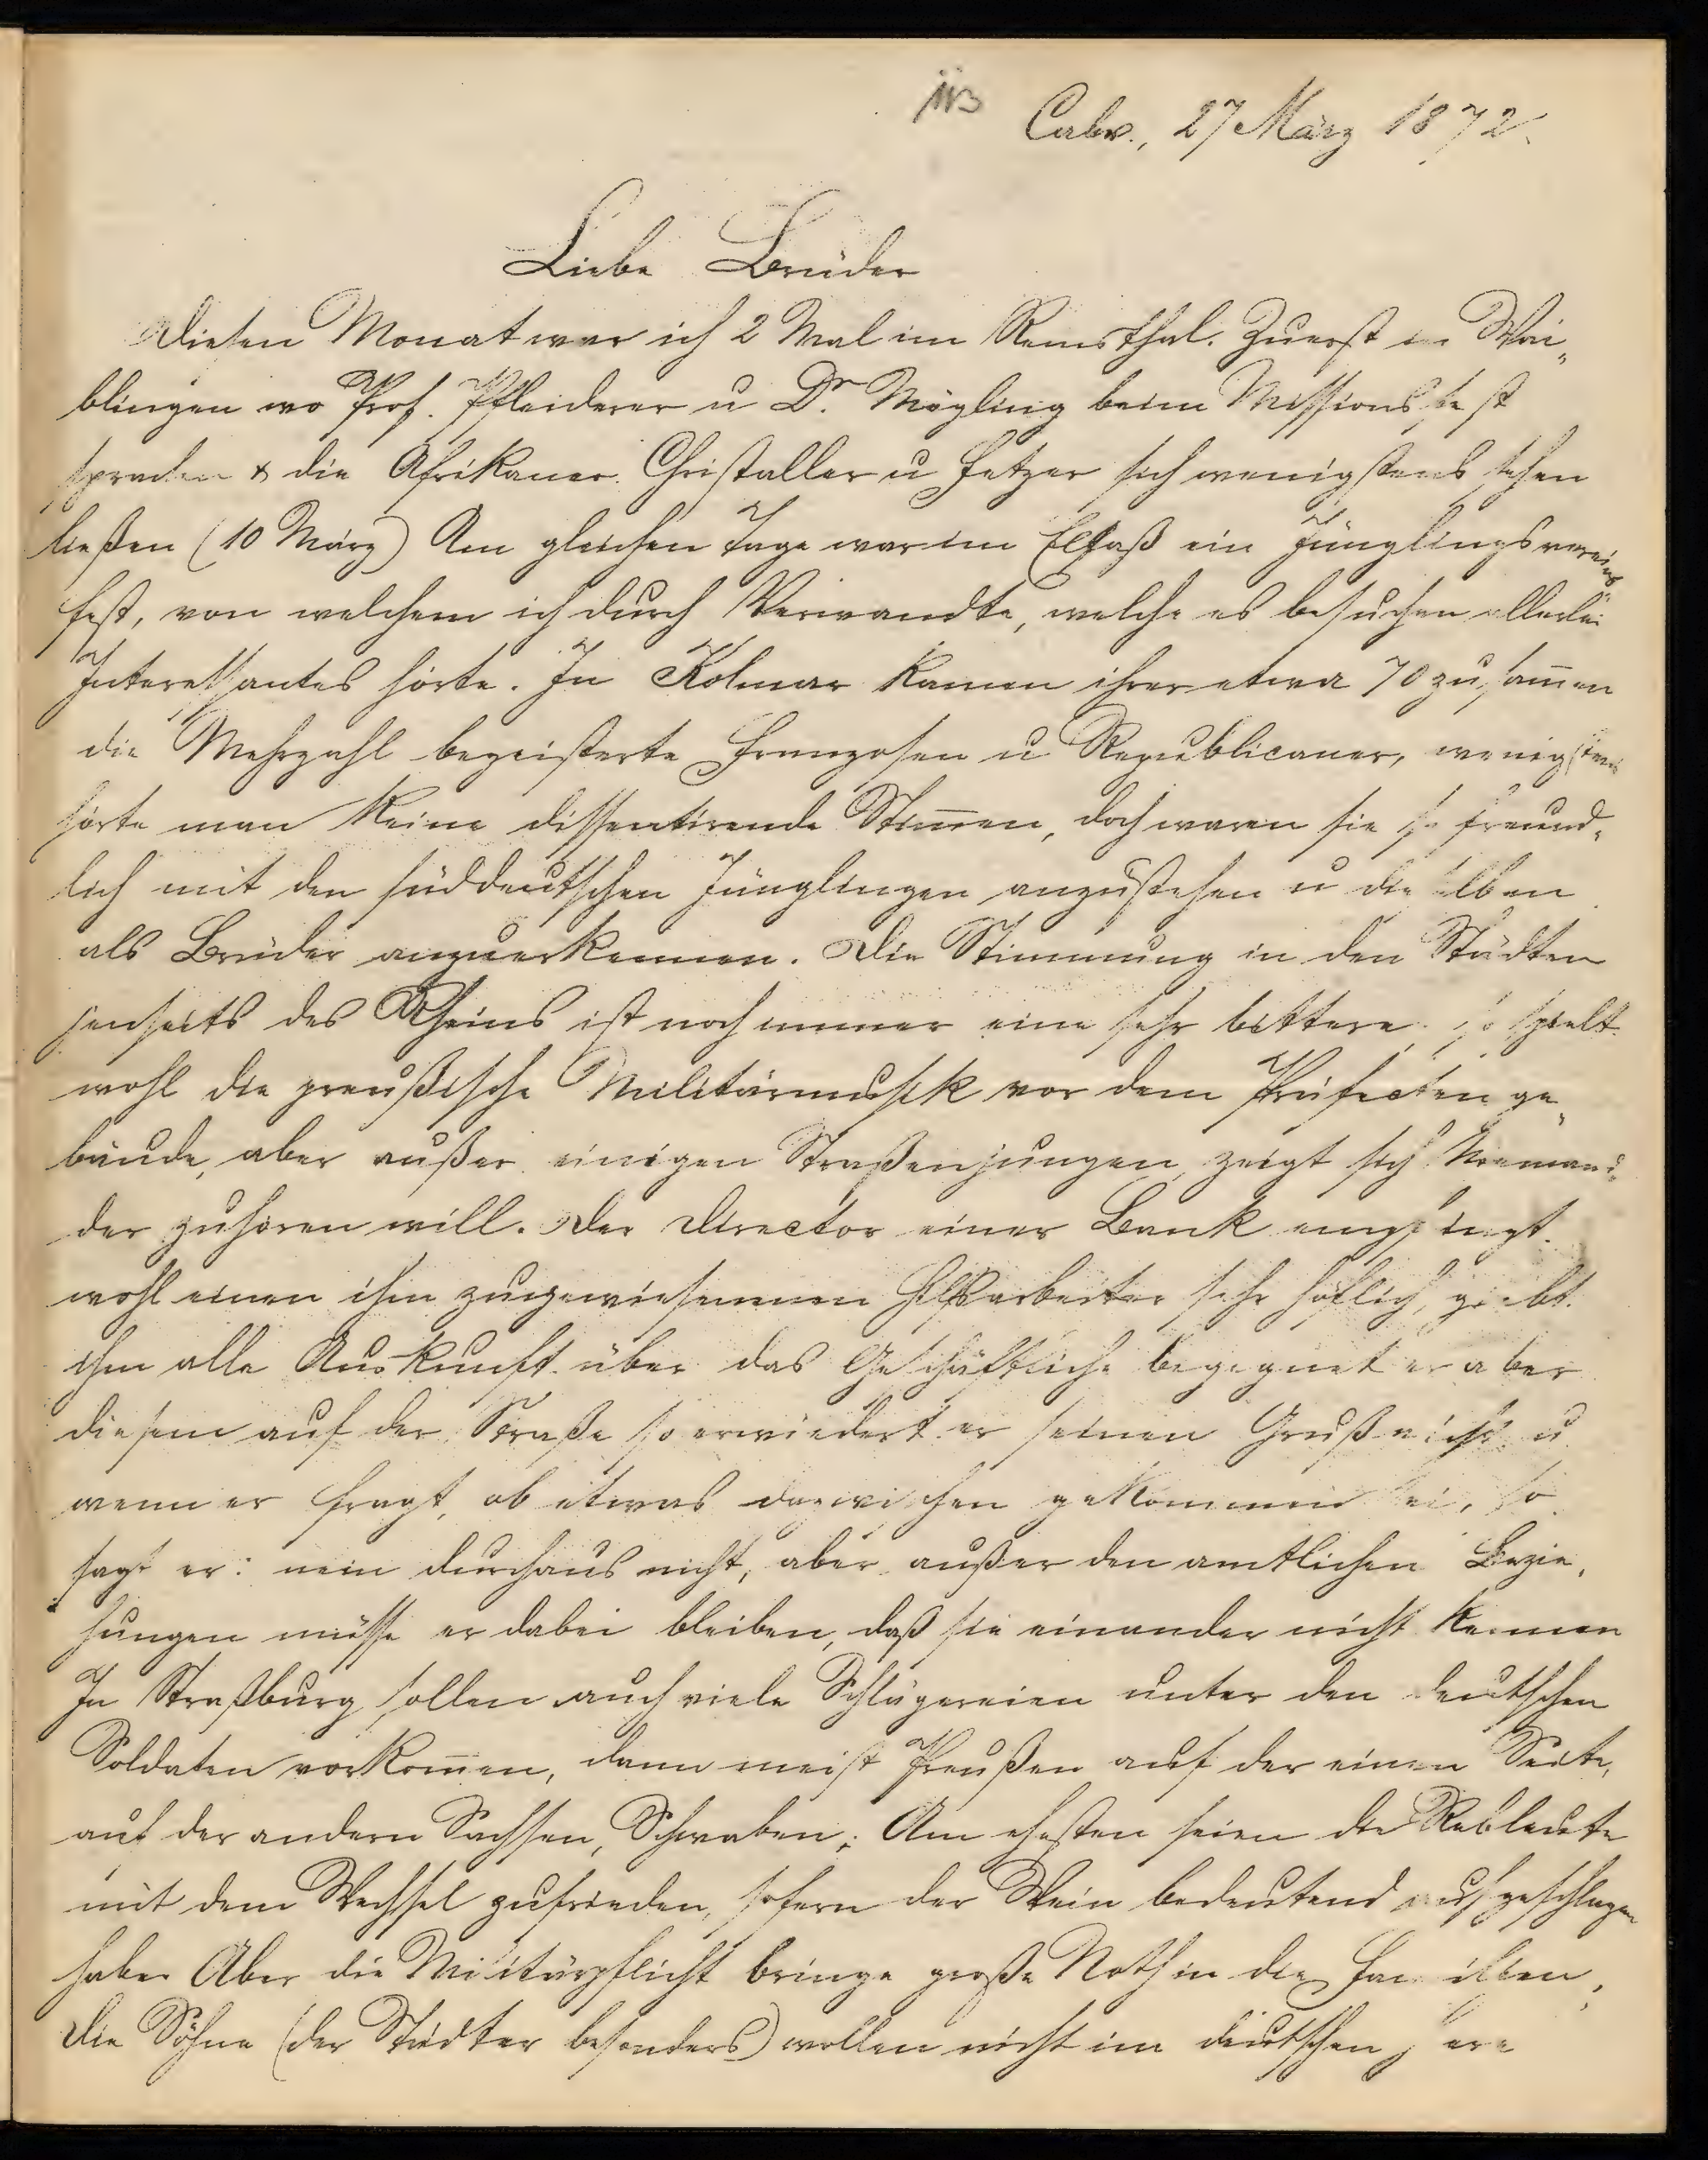 Calw., 27 März 1872.
Liebe Brüder
Diesen Monat war ich 2 Mal im Remsthal. Zuerst in Wai-
blingen wo Prof. Pfleiderer u Dr. Mögling beim Missionsfest
sprachen & die Afrikaner. Christaller u Fetzer sich wenigstens sehen
ließen (10 März) Am gleichen Tage war im Elsaß ein Jünglingsvereins-
fest, von welchem ich durch Verwandte, welche es besuchen allerlei
Interessantes hörte. In Kolmar kamen ihrer etwa 70 zusam̄en
die Mehrzahl begeisterte Franzosen u Republicaner, wenigstens
hörte man keine dissentirende Stim̄en, doch waren sie so freund-
lich mit den süddeutschen Jünglingen anzustehen u dieselben
als Brüder anzuerkennen. Die Stimmung in den Städten
jenseits des Rheins ist noch immer eine sehr bittere. so spielt
wohl die preußische Militärmusik vor dem Präfecten ge-
bäude, aber außer einigen Straßenjungen, zeigt sich Niemand
der zuhören will. Der Director einer Bank empfängt
wohl einen ihm zugewiesennen Hilfsarbeiter sehr höflich, giebt
ihm alle Auskunft über das Geschäftliche begegnet er aber
diesem auf der Straße so erwiedert er seinen Gruß nicht u
wenn er fragt, ob etwas dazwischen gekommen sei, so
sagt er: nein durchaus nicht, aber außer den amtlichen Bezie-
hungen müsse er dabei bleiben, daß sie einander nicht kennen
In Straßburg sollen auch viele Schlägereien unter den deutschen
Soldaten vorkom̄en, dann meist Preußen auf der einen Seite,
auf der andern Sachsen, Schwaben; Am ehesten seien die Rebleute
mit dem Wechsel zufrieden, sofern der Wein bedeutend aufgeschlagen
habe. Aber die Militärpflicht bringe große Noth in die Familien,
die Söhne (der Städter besonders) wollen nicht im deutschen Heere